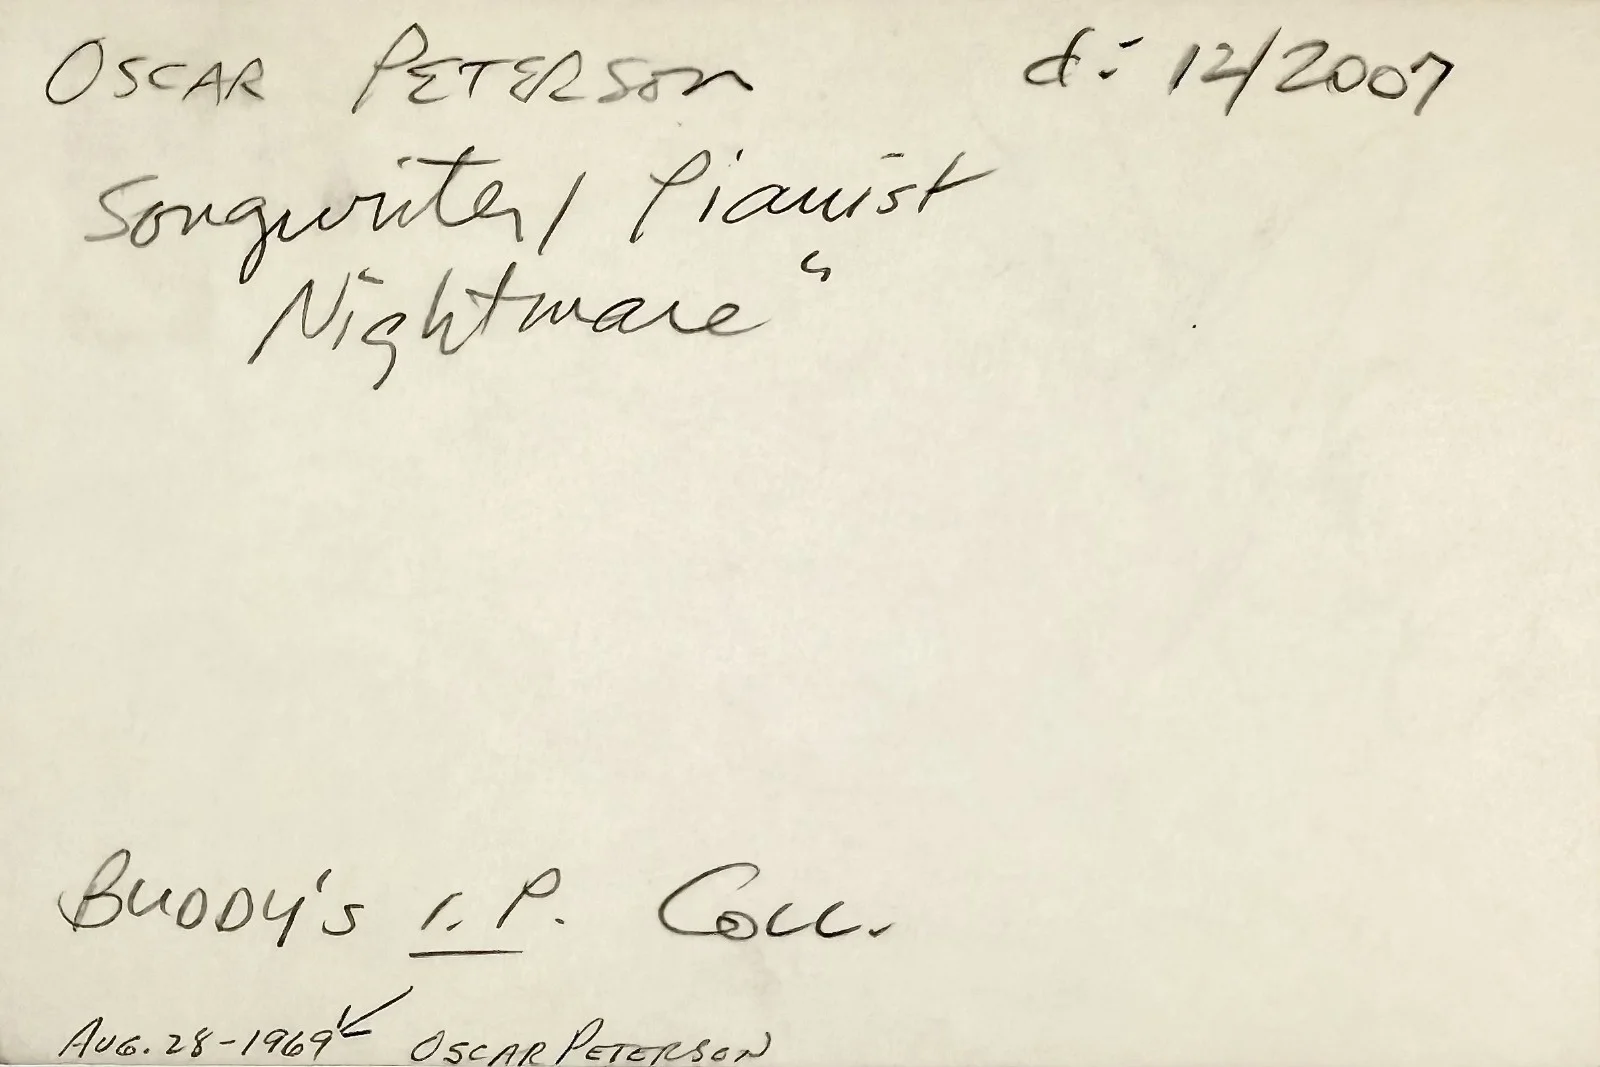 OSCAR PETERSON d: 12/2007
Songwriter / Pianist
Nightmare"
BUDDY'S I.P. COLL.
AUG. 28-1969 OSCAR PETERSON